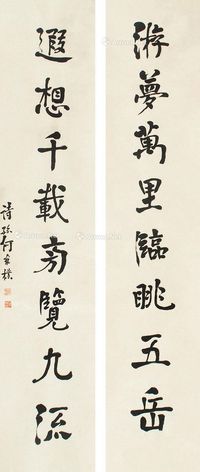 游夢萬里臨眺五岳
遐想千載旁覽九流
詩孫何維樸